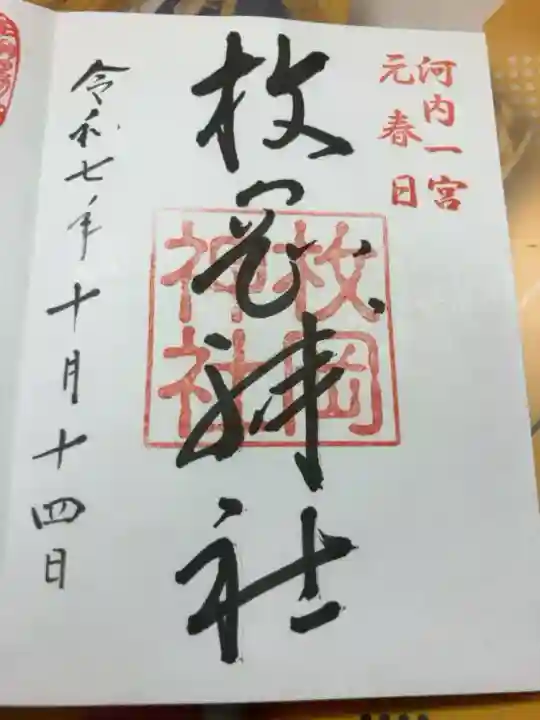 河内一宮
元春日
枚岡神社
枚岡
神社
令和七年十月十四日